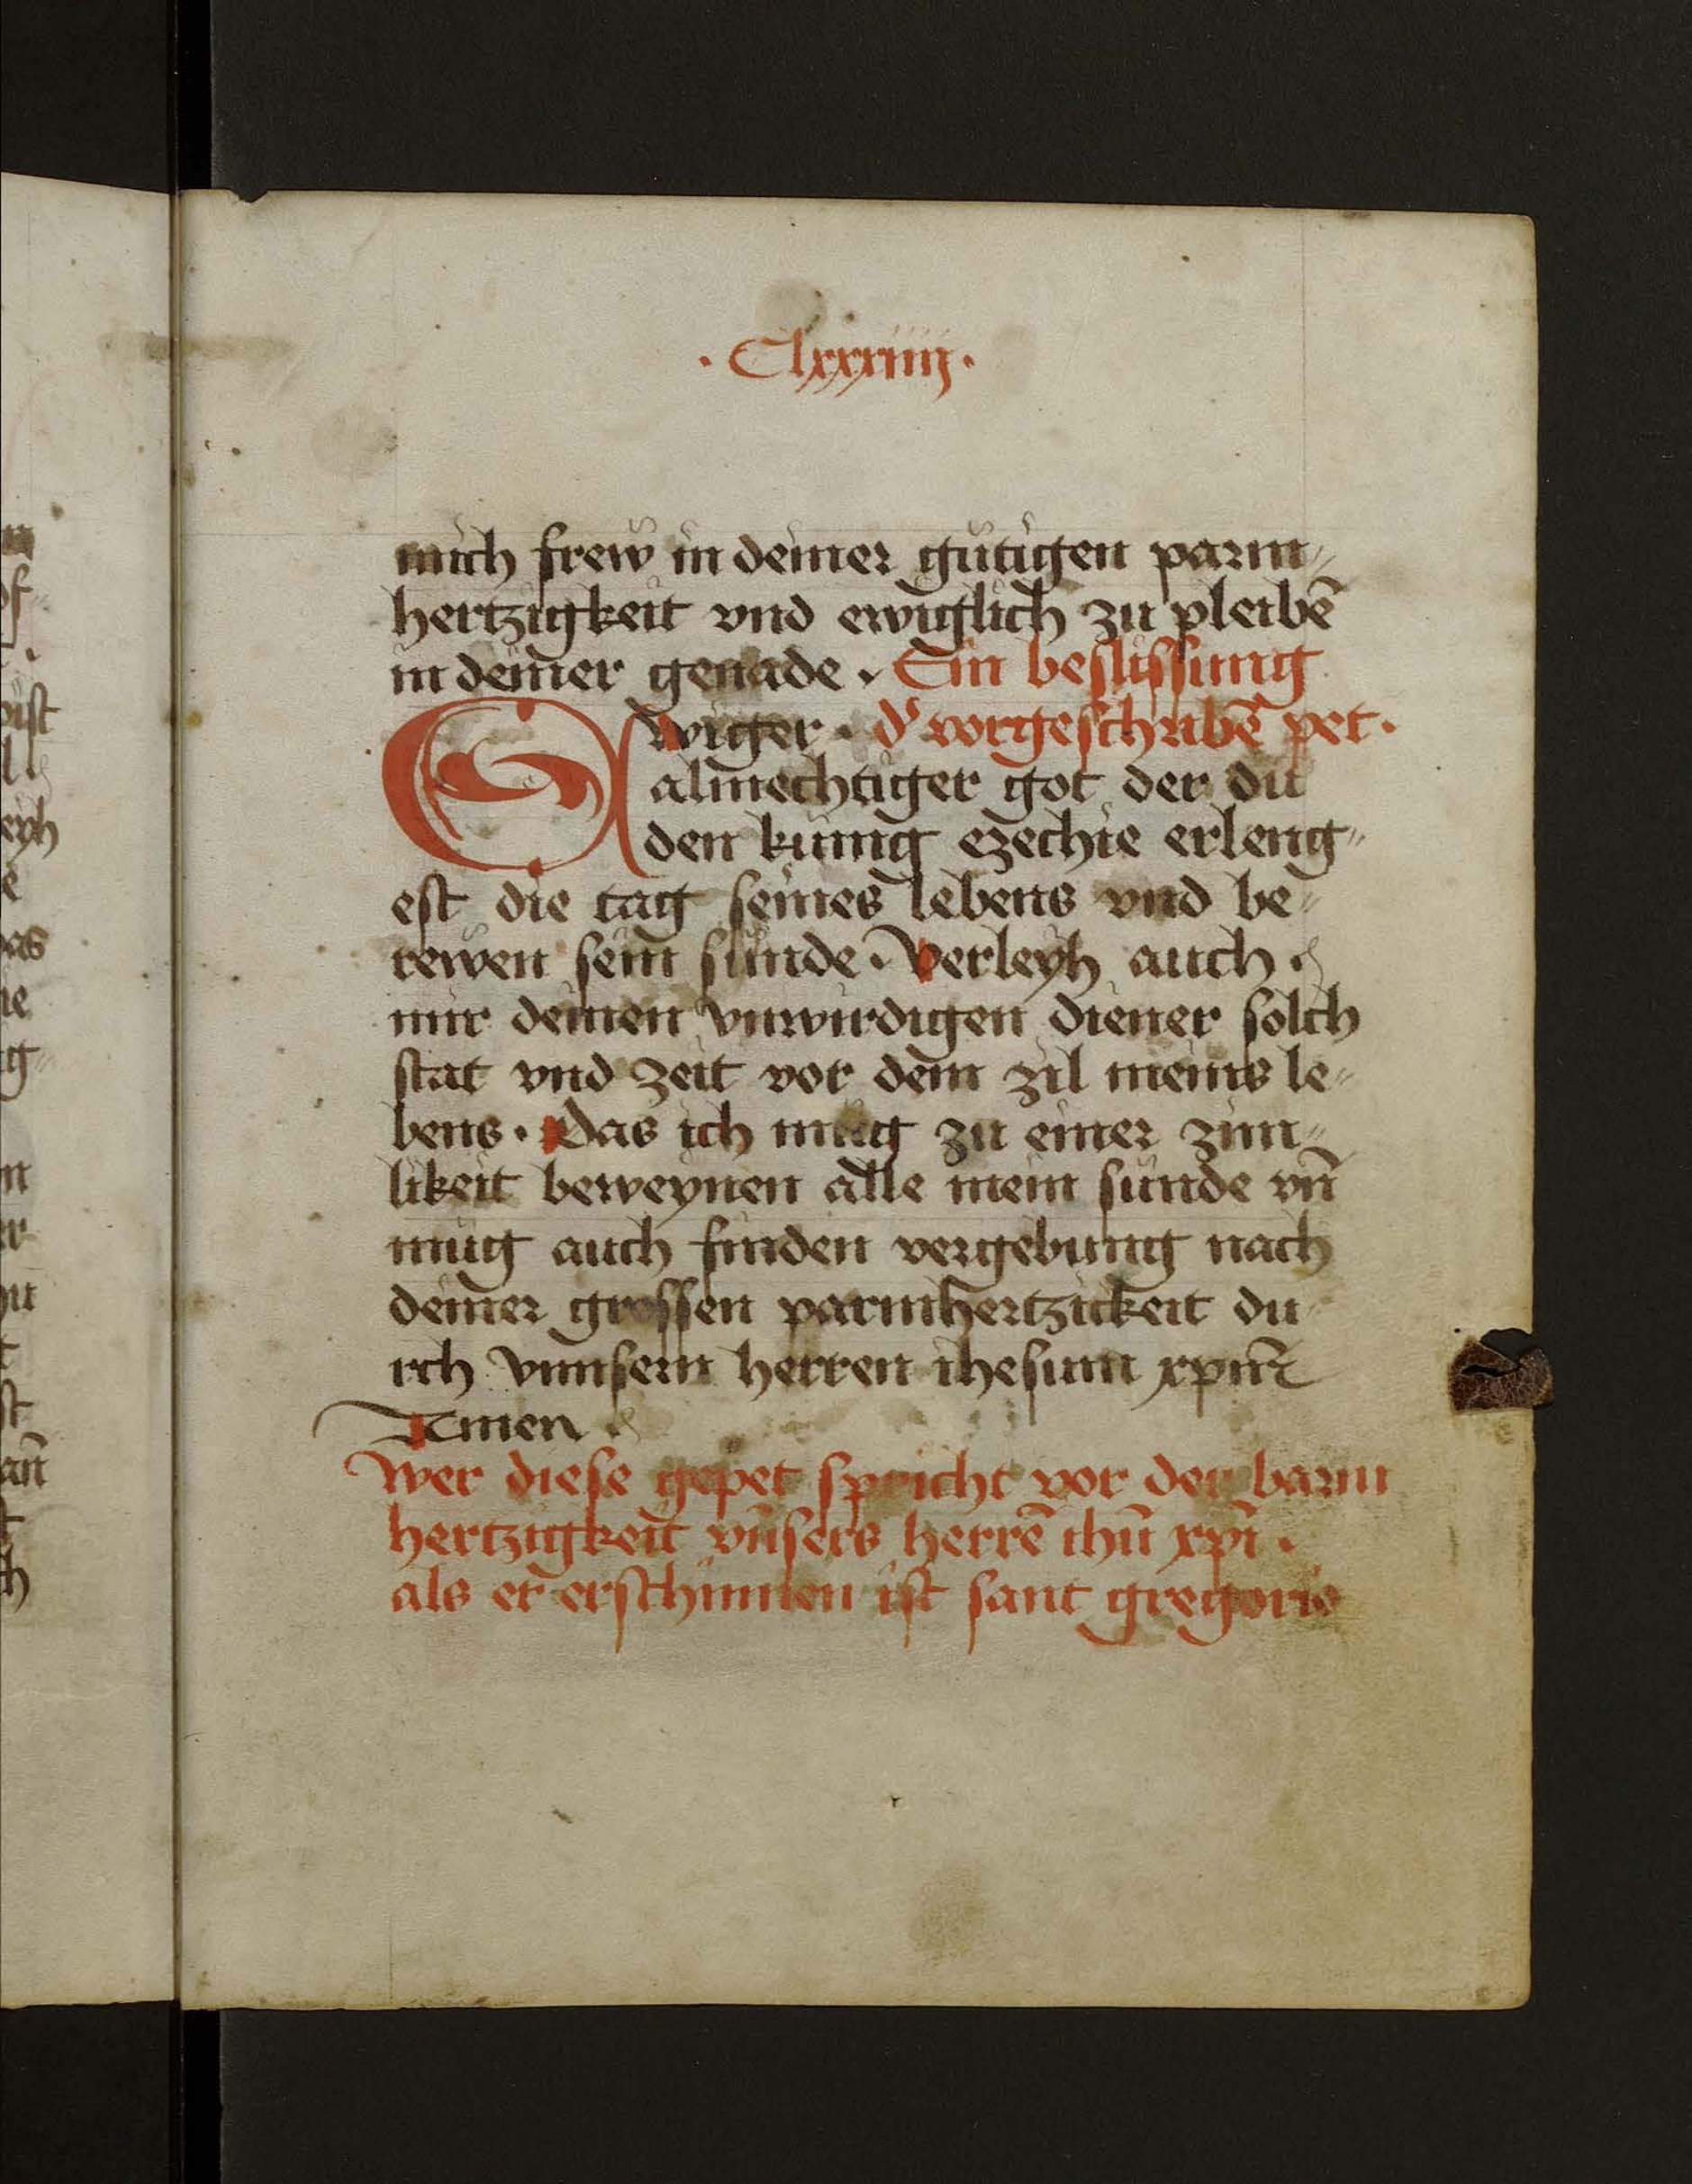 · Clxxxiiij ·
mich frew in deiner gütigen parm⸗
hertzigkeit vnd ewiglich zu pleibē
in deiner genade . Ein beslissung
Ewiger · d' vorgeschribē pet ·
almechtiger got der du
den künig ezechie erleng⸗
est die tag seines lebens vnd be⸗
rewen sein sünde · Verleyh auch .
mir deinen vnwirdigen diener solch
stat vnd zeit vor dem zil meins le⸗
bens · Das ich müg zu einer zim⸗
likeit beweynen alle mein sünde vn̄
mug auch finden vergebung nach
deiner grossen parmhertzickeit du
rch vnnsern herren ihesum xpm̄
Amen
Wer diese gepet spricht vor der barm
hertzigkeit vn̄sers herrē ihū xpi̅ .
als er erschinnen ist sant gregorio